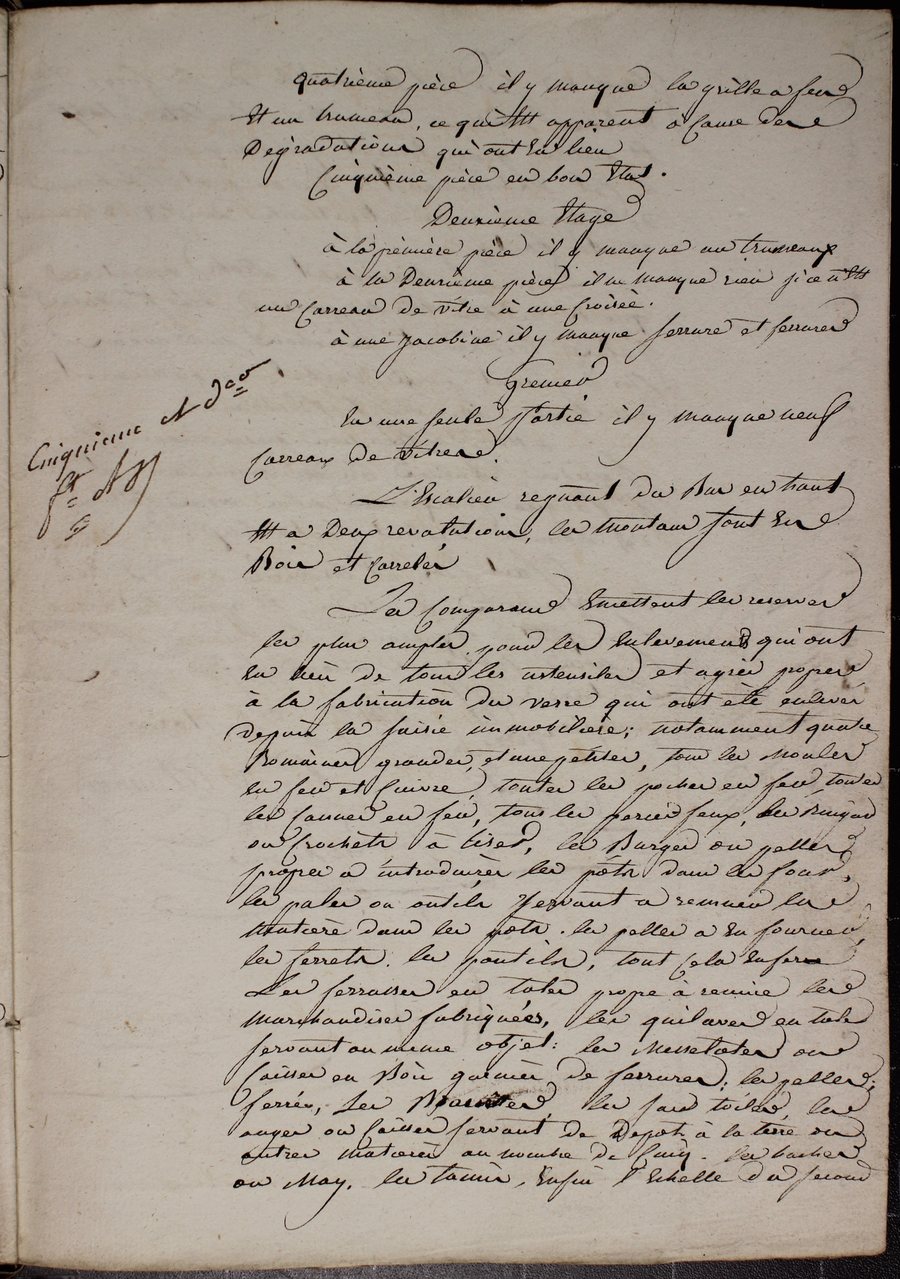 quatrième pièce il y manque la grille a feu
Et un trumeau, ce qui Est apparent a Cause des
Dégradations qui ont Eu lieu
Cinquième pièce en bon Etat.
Deuxième Etage
à la première pièce il y manque un trumeaux
à la Deuxième pièce il ne manque rien si ce n'Est
un Carreau de vitre à une Croisée.
à une jacobine il y manque serrure et ferrures
Grenier
En une seule Partie il y manque neuf
Carreaux de vitres.
Cinquieme et d
L'Escalier regnant du Bas en haut
Est a Deux revolutions, les montans sont En
Bois et Carrelés
Les Comparans Emettent les reserves
les plus amples pour les Enlevements qui ont
Eu lieu de tous les ustensiles et agrès propres
à la fabrication du verre qui ont été enlevés
depuis la saisie immobilière; notamment quatre
Romaines grandes, et une petites, tous les Moules
En feu et Cuivre, toutes les poches en feu, toutes
les Cannes en feu, tous les feaux, les Ringards
ou Crochets à tiser, les Barges ou pelles
propres a introduire les pots dans les fours,
les pales ou outils Servant a remuer les
Matière dans les pots. les pelles a En fourner,
les ferrets. les pontils, tout Cela En fer
Les ferrasses en toles propre à reunire les
marchandises fabriquées, les en tole
servant au même objet: les ou
Caisses en Bois garnies de ferrures; les pelles
ferrées, Les les les
auges ou Caisses servant de Depot à la terre ou
autres matieres au nombre de Cinq. les baches
ou May. les tamis, Enfin l'Echelle du second